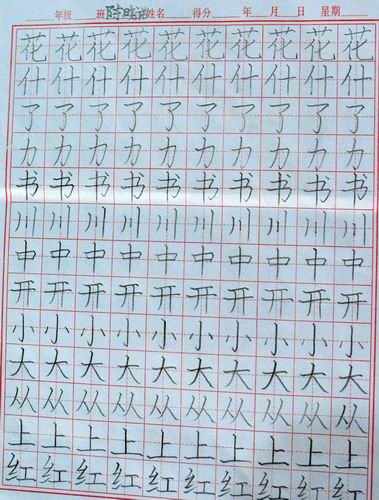 年级 班 姓名 得分 年 月 日 星期
花 花 花 花 花 花 花 花 花 花
什 什 什 什 什 什 什 什 什 什
了 了 了 了 了 了 了 了 了 了
力 力 力 力 力 力 力 力 力 力
书 书 书 书 书 书 书 书 书 书
川 川 川 川 川 川 川 川 川 川
中 中 中 中 中 中 中 中 中 中
开 开 开 开 开 开 开 开 开 开
小 小 小 小 小 小 小 小 小 小
大 大 大 大 大 大 大 大 大 大
从 从 从 从 从 从 从 从 从 从
上 上 上 上 上 上 上 上 上 上
红 红 红 红 红 红 红 红 红 红